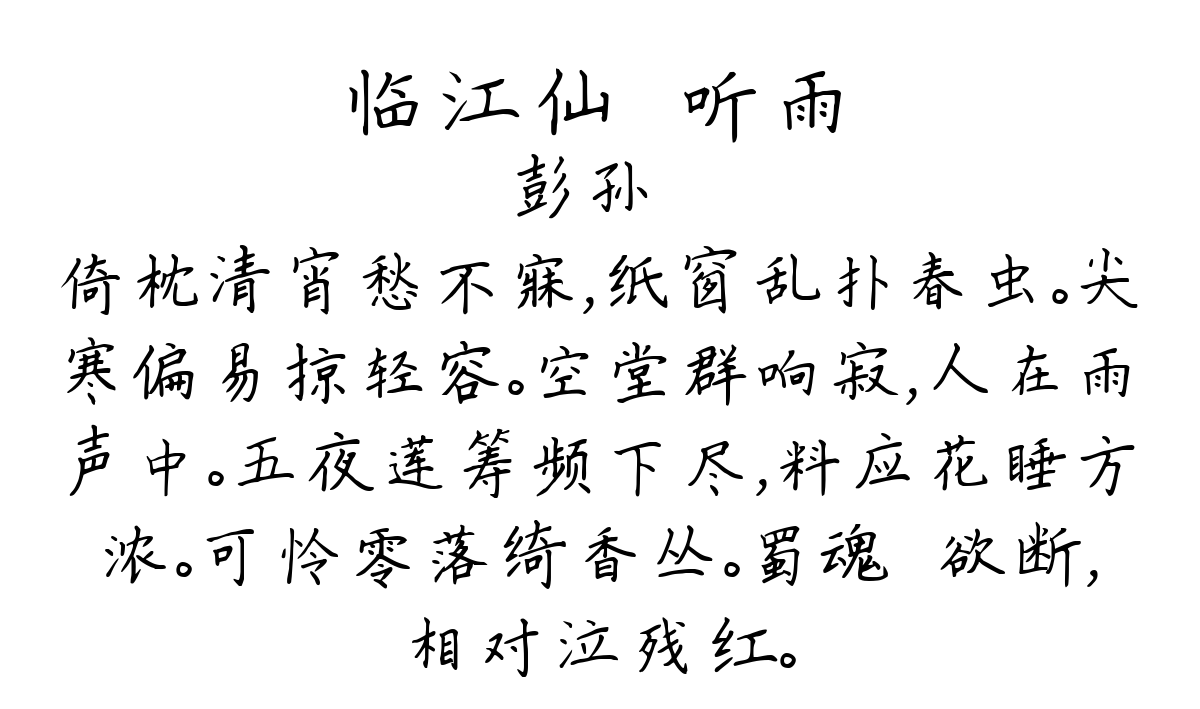 临江仙 听雨
彭孙
倚枕清宵愁不寐,纸窗乱扑春虫。尖
寒偏易掠轻容。空堂群响寂,人在雨
声中。五夜莲筹频下尽,料应花睡方
浓。可怜零落绮香丛。蜀魂 欲断,
相对泣残红。